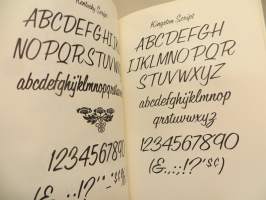 Kentucky Script
ABCDEFGHI
NOPQRSTU
abcdefghijklmno
1234567890
(&.,:;!?'"-$¢
Kingston Script
ABCDEFGH
IJKLMNOPQR
STUVWXYZ
abcdefghijklmnop
qrstuvwxyz
1234567890
(&.,:;!?'"$¢)